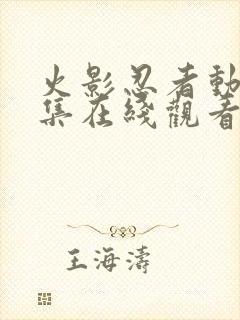 火影忍者動
集在綫觀看
王海濤